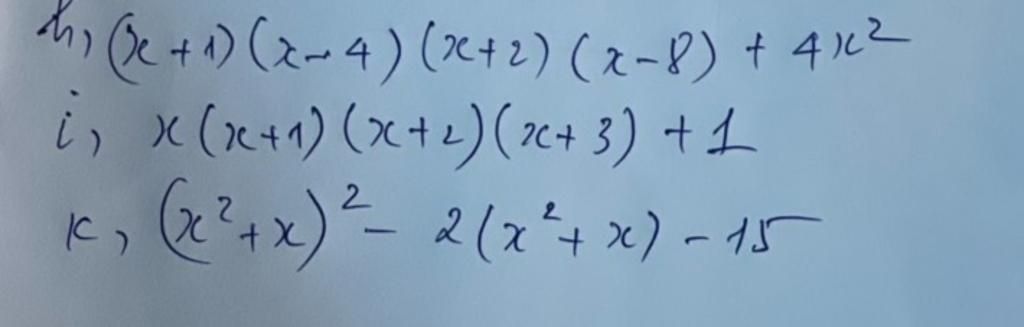 h, (x+1)(x-4)(x+2)(x-8) + 4x²
i, x(x+1)(x+2)(x+3) +1
k, (x²+x)² - 2(x²+x) -15